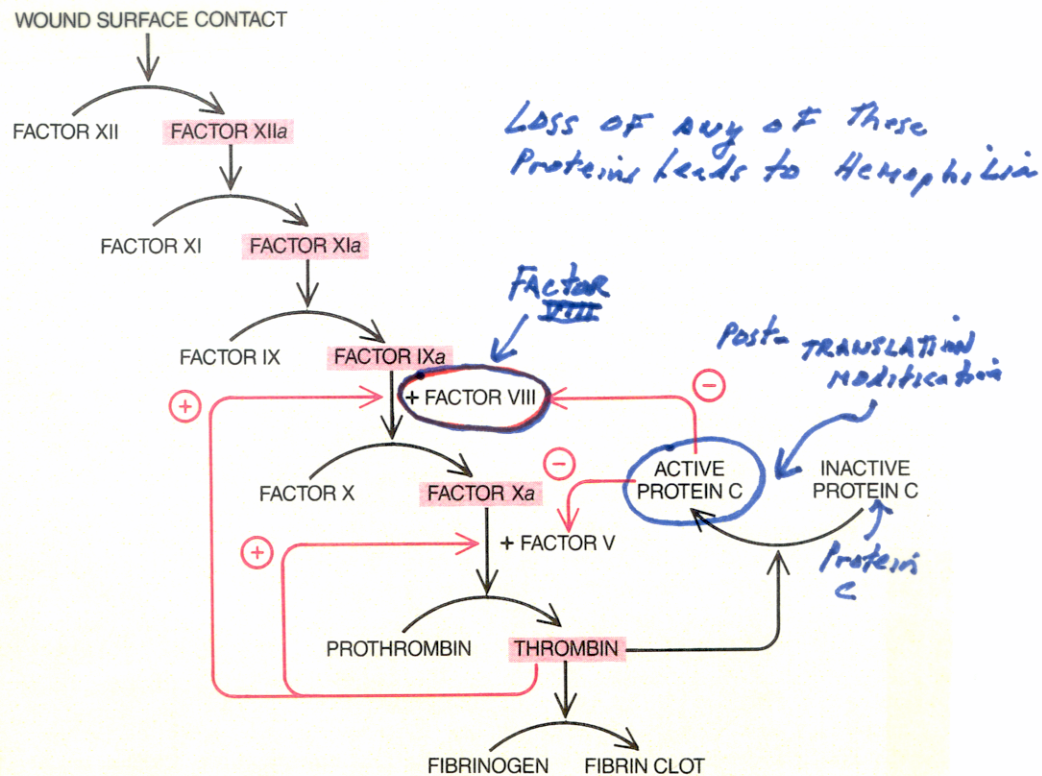 WOUND SURFACE CONTACT
FACTOR XII
FACTOR XIIa
Loss of any of These
Proteins Leads to Hemophilia
FACTOR XI
FACTOR XIa
FActoR
VIII
FACTOR IX
FACTOR IXa
Post-
TRANSLATION
Modification
+
+ FACTOR VIII
−
FACTOR X
FACTOR Xa
−
ACTIVE
PROTEIN C
INACTIVE
PROTEIN C
+
+ FACTOR V
Protein
C
PROTHROMBIN
THROMBIN
FIBRINOGEN
FIBRIN CLOT